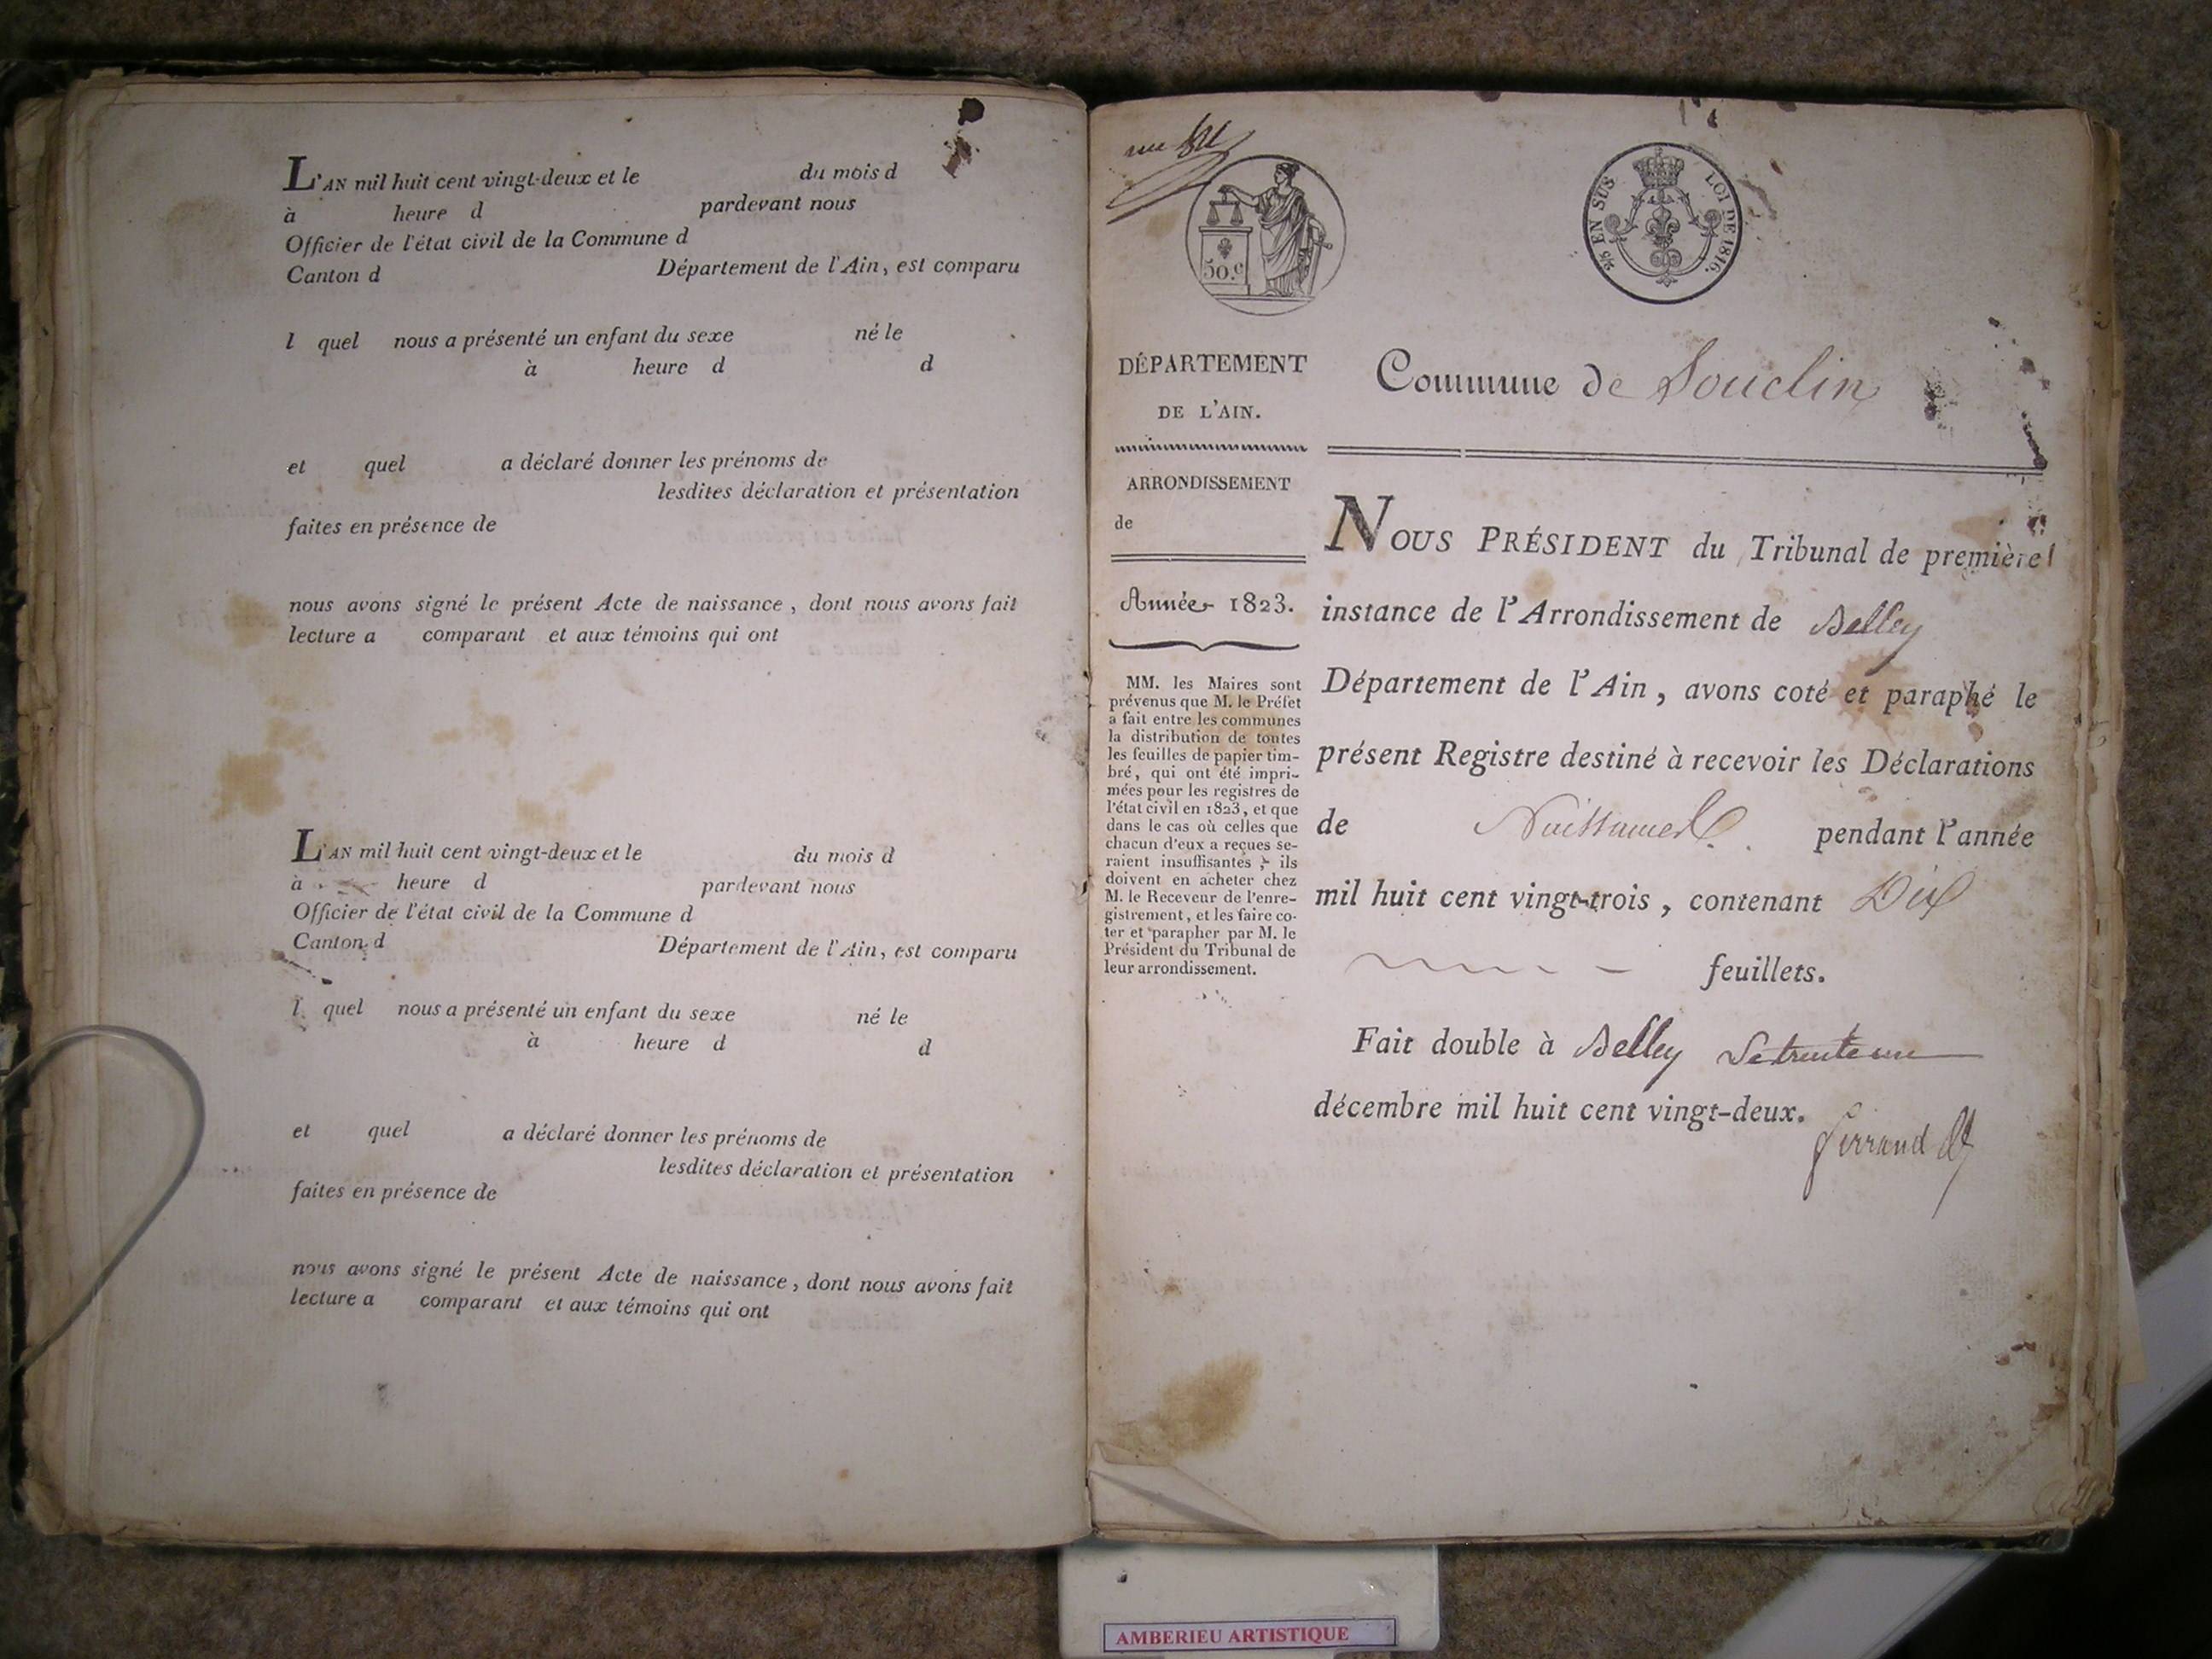 L'AN mil huit cent vingt-deux et le du mois d
à heure d pardevant nous
Officier de l'état civil de la Commune d
Canton d Département de l'Ain, est comparu
l quel nous a présenté un enfant du sexe né le
à heure d d
et quel a déclaré donner les prénoms de
lesdites déclaration et présentation
faites en présence de
nous avons signé le présent Acte de naissance, dont nous avons fait
lecture a comparant et aux témoins qui ont
L'AN mil huit cent vingt-deux et le du mois d
à heure d pardevant nous
Officier de l'état civil de la Commune d
Canton d Département de l'Ain, est comparu
l quel nous a présenté un enfant du sexe né le
à heure d d
et quel a déclaré donner les prénoms de
lesdites déclaration et présentation
faites en présence de
nous avons signé le présent Acte de naissance, dont nous avons fait
lecture a comparant et aux témoins qui ont
50.c
2/5 EN SUS LOI DE 1816.
DÉPARTEMENT
DE L'AIN.
ARRONDISSEMENT
de
Année 1823.
MM. les Maires sont
prévenus que M. le Préfet
a fait entre les communes
la distribution de toutes
les feuilles de papier tim-
bré, qui ont été impri-
mées pour les registres de
l'état civil en 1823, et que
dans le cas où celles que
chacun d'eux a reçues se-
raient insuffisantes, ils
doivent en acheter chez
M. le Receveur de l'enre-
gistrement, et les faire co-
ter et parapher par M. le
Président du Tribunal de
leur arrondissement.
Commune de Souclin
NOUS PRÉSIDENT du Tribunal de première
instance de l'Arrondissement de Belley
Département de l'Ain, avons coté et paraphé le
présent Registre destiné à recevoir les Déclarations
de Naissances pendant l'année
mil huit cent vingt-trois, contenant Dix
feuillets.
Fait double à Belley le trente un
décembre mil huit cent vingt-deux.
AMBERIEU ARTISTIQUE